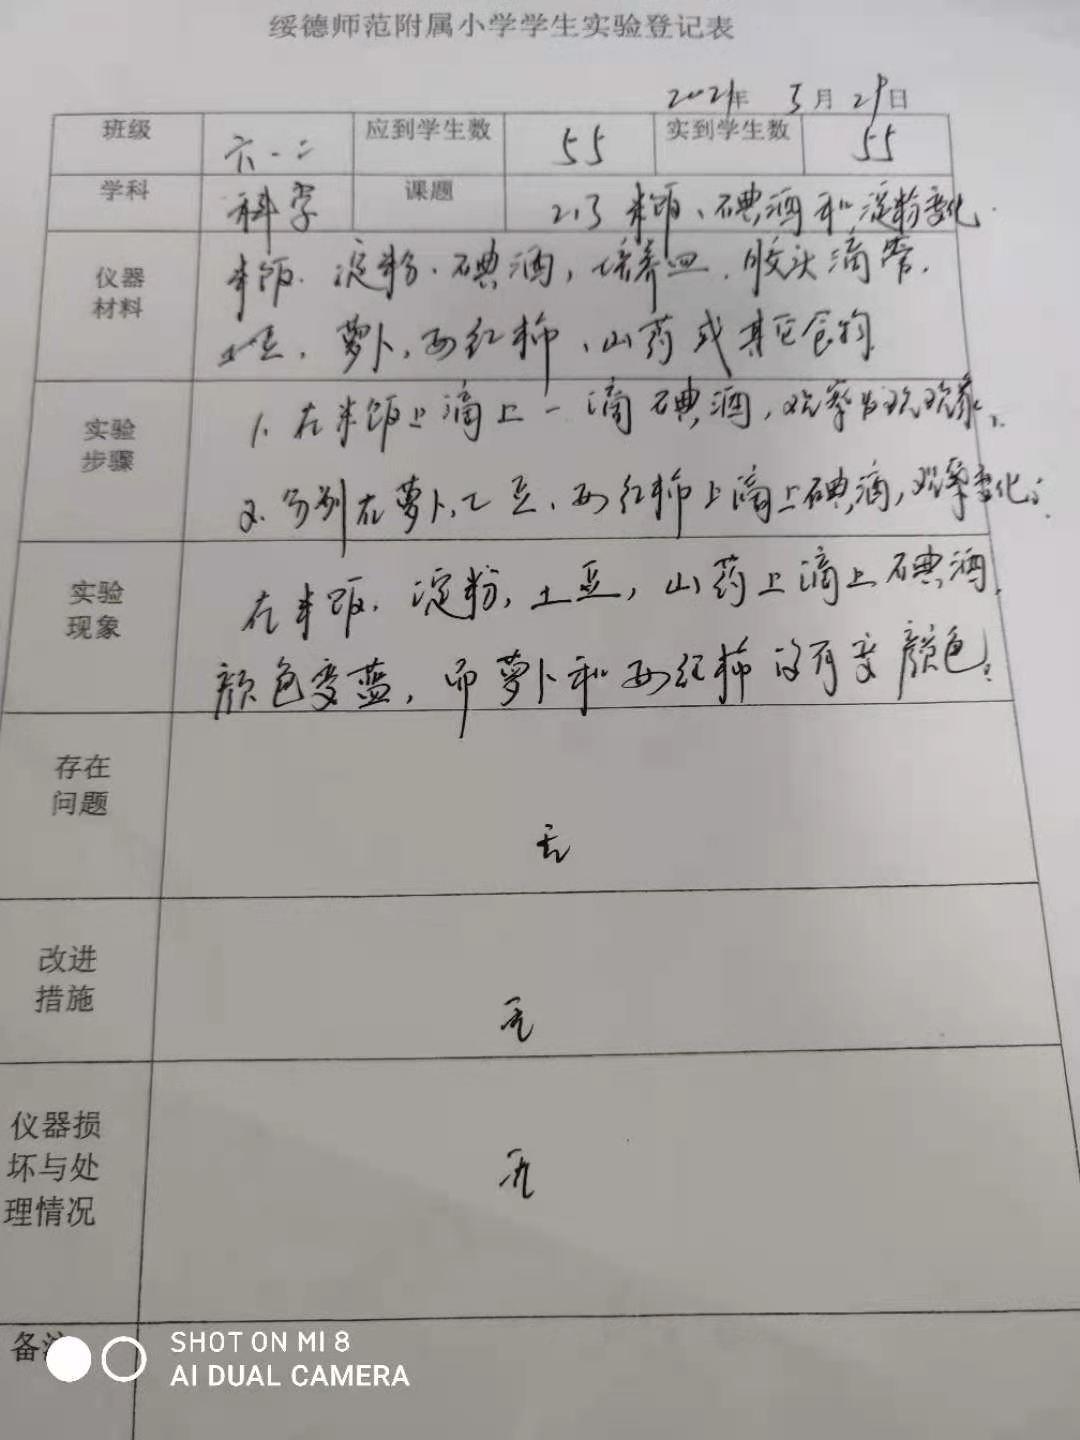 绥德师范附属小学学生实验登记表
2021年 5月 29日
班级 六.二 应到学生数 55 实到学生数 55
学科 科学 课题 2.3 米饭、碘酒和淀粉变化.
仪器
材料
米饭.淀粉.碘酒,培养皿.胶头滴管.
土豆.萝卜,西红柿、山药或其它食物
实验
步骤
1.在米饭上滴上一滴碘酒,观察发现现象;
2.分别在萝卜,土豆.西红柿上滴上碘酒,观察变化;
实验
现象
在米饭.淀粉,土豆,山药上滴上碘酒,
颜色变蓝,而萝卜和西红柿没有变颜色;
存在
问题
无
改进
措施
无
仪器损
坏与处
理情况
无
备注
SHOT ON MI 8
AI DUAL CAMERA